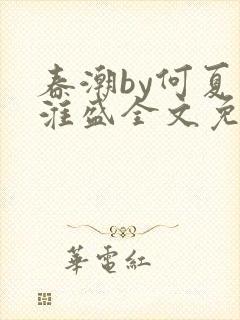 春潮by何夏
淮盛全文免
華電紅